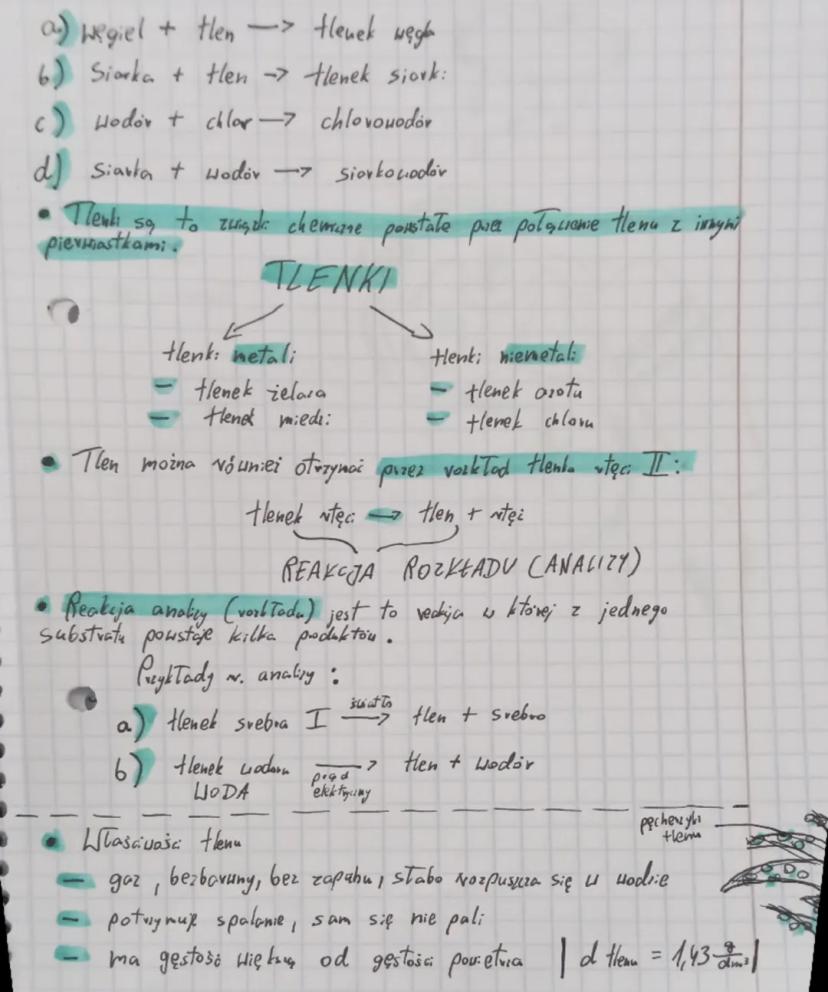 a) węgiel + tlen → tlenek węgla
b) Siarka + tlen → tlenek siarki
c) wodór + chlor → chlorowodór
d) Siarka + wodór → siarkowodór
• Tlenki są to związki chemiczne powstałe przez połączenie tlenu z innymi
pierwiastkami.
TLENKI
tlenki metali
tlenki niemetali
- tlenek żelaza
- tlenek azotu
- tlenek miedzi
- tlenek chloru
• Tlen można również otrzymać przez rozkład tlenku rtęci II:
tlenek rtęci → tlen + rtęć
REAKCJA ROZKŁADU (ANALIZY)
• Reakcja analizy (rozkładu) jest to reakcja w której z jednego
substratu powstaje kilka produktów.
Przykłady r. analizy:
a) tlenek srebra I światło → tlen + srebro
b) tlenek wodoru prąd elektryczny → tlen + wodór
WODA
pęcherzyki
tlenu
• Właściwości tlenu
- gaz, bezbarwny, bez zapachu, słabo rozpuszcza się w wodzie
- potrzymuje spalanie, sam się nie pali
- ma gęstość większą od gęstości powietrza | d tlenu = 1,43 g/dm³|